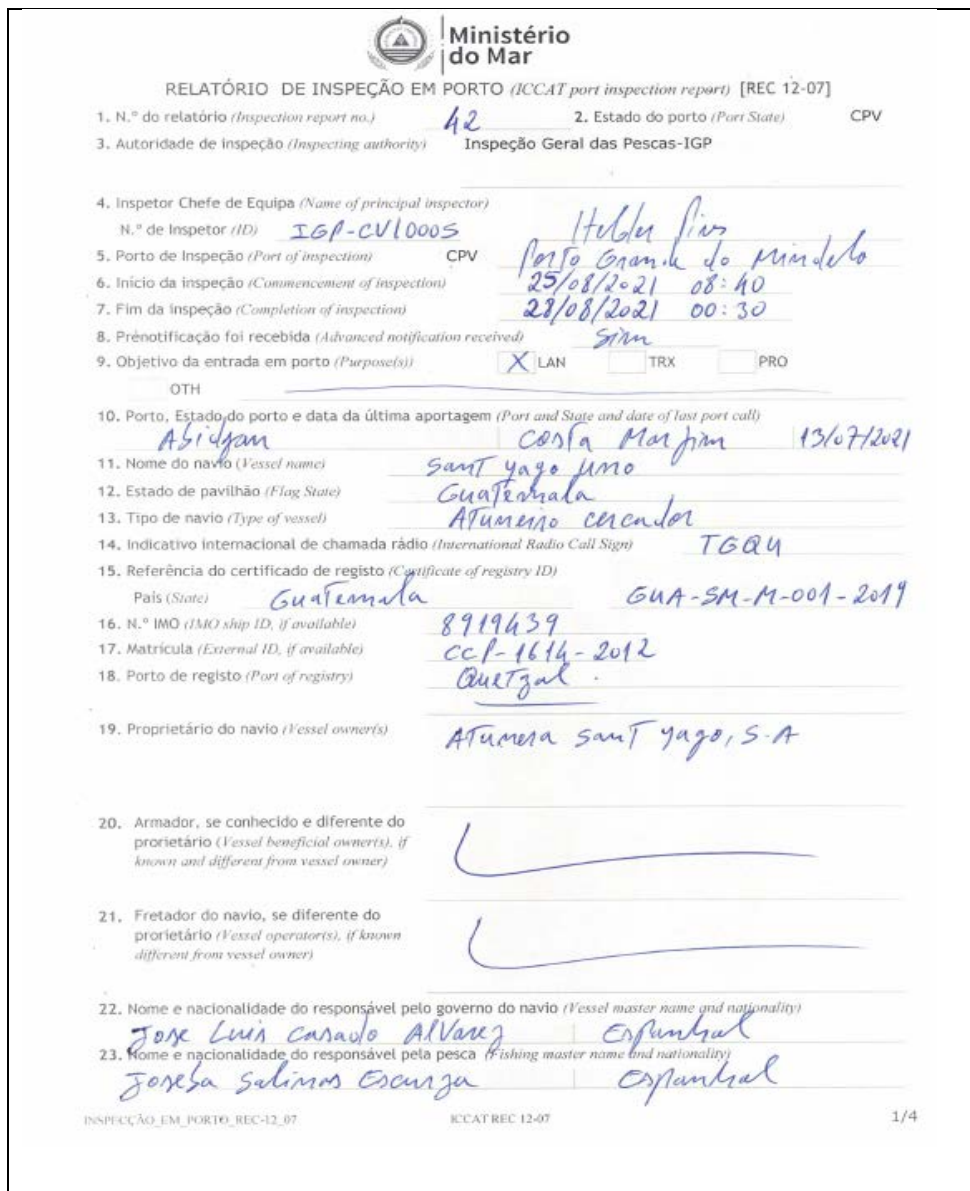 Ministério
do Mar
RELATÓRIO DE INSPEÇÃO EM PORTO (ICCAT port inspection report) [REC 12-07]
1. N.º do relatório (Inspection report no.) 42 2. Estado do porto (Port State) CPV
3. Autoridade de inspeção (Inspecting authority) Inspeção Geral das Pescas-IGP
4. Inspetor Chefe de Equipa (Name of principal inspector)
N.º de Inspetor (ID) IGP-CV10005 Helder Pires
5. Porto de Inspeção (Port of inspection) CPV Porto Grande do Mindelo
6. Início da inspeção (Commencement of inspection) 25/08/2021 08:40
7. Fim da inspeção (Completion of inspection) 28/08/2021 00:30
8. Prénotificação foi recebida (Advanced notification received) Sim
9. Objetivo da entrada em porto (Purpose(s)) X LAN TRX PRO
OTH
10. Porto, Estado do porto e data da última aportagem (Port and State and date of last port call)
Abidjan Costa Marfim 13/07/2021
11. Nome do navio (Vessel name) Sant Yago uno
12. Estado de pavilhão (Flag State) Guatemala
13. Tipo de navio (Type of vessel) Atuneiro cercador
14. Indicativo internacional de chamada rádio (International Radio Call Sign) TGQU
15. Referência do certificado de registo (Certificate of registry ID)
País (State) Guatemala GUA-SM-M-001-2019
16. N.º IMO (IMO ship ID, if available) 8919439
17. Matrícula (External ID, if available) CCP-1614-2012
18. Porto de registo (Port of registry) Quetzal.
19. Proprietário do navio (Vessel owner(s)) Atunera Sant Yago, S.A
20. Armador, se conhecido e diferente do
prorietário (Vessel beneficial owner(s), if
known and different from vessel owner)
21. Fretador do navio, se diferente do
prorietário (Vessel operator(s), if known
different from vessel owner)
22. Nome e nacionalidade do responsável pelo governo do navio (Vessel master name and nationality)
Jose Luis Casado Alvarez Espanhol
23. Nome e nacionalidade do responsável pela pesca (Fishing master name and nationality)
Joseba Salinas Espanhol
INSPECÇÃO_EM_PORTO_REC-12_07 ICCAT REC 12-07 1/4